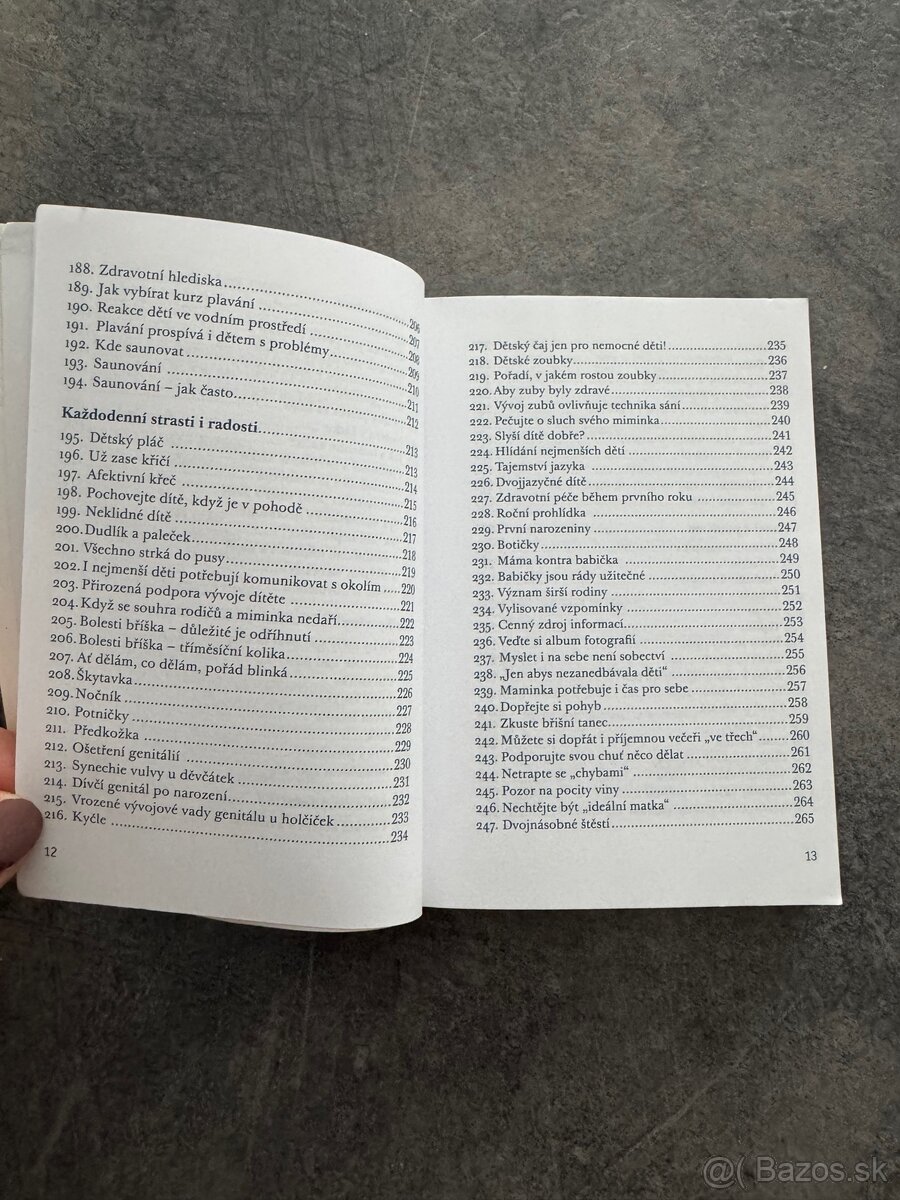 188. Zdravotní hlediska........206
189. Jak vybírat kurz plavání........207
190. Reakce dětí ve vodním prostředí........208
191. Plavání prospívá i dětem s problémy........209
192. Kde saunovat........210
193. Saunování........211
194. Saunování – jak často........212
Každodenní strasti i radosti........213
195. Dětský pláč........213
196. Už zase křičí........214
197. Afektivní křeč........215
198. Pochovejte dítě, když je v pohodě........216
199. Neklidné dítě........217
200. Dudlík a paleček........218
201. Všechno strká do pusy........219
202. I nejmenší děti potřebují komunikovat s okolím........220
203. Přirozená podpora vývoje dítěte........221
204. Když se souhra rodičů a miminka nedaří........222
205. Bolesti bříška – důležité je odříhnutí........223
206. Bolesti bříška – tříměsíční kolika........224
207. Ať dělám, co dělám, pořád blinká........225
208. Škytavka........226
209. Nočník........227
210. Potničky........228
211. Předkožka........229
212. Ošetření genitálií........230
213. Synechie vulvy u děvčátek........231
214. Dívčí genitál po narození........232
215. Vrozené vývojové vady genitálu u holčiček........233
216. Kyčle........234
12
217. Dětský čaj jen pro nemocné děti!........235
218. Dětské zoubky........236
219. Pořadí, v jakém rostou zoubky........237
220. Aby zuby byly zdravé........238
221. Vývoj zubů ovlivňuje technika sání........239
222. Pečujte o sluch svého miminka........240
223. Slyší dítě dobře?........241
224. Hlídání nejmenších dětí........242
225. Tajemství jazyka........243
226. Dvojjazyčné dítě........244
227. Zdravotní péče během prvního roku........245
228. Roční prohlídka........246
229. První narozeniny........247
230. Botičky........248
231. Máma kontra babička........249
232. Babičky jsou rády užitečné........250
233. Význam širší rodiny........251
234. Vylisované vzpomínky........252
235. Cenný zdroj informací........253
236. Veďte si album fotografií........254
237. Myslet i na sebe není sobectví........255
238. „Jen abys nezanedbávala děti“........256
239. Maminka potřebuje i čas pro sebe........257
240. Dopřejte si pohyb........258
241. Zkuste břišní tanec........259
242. Můžete si dopřát i příjemnou večeři „ve třech“........260
243. Podporujte svou chuť něco dělat........261
244. Netrapte se „chybami“........262
245. Pozor na pocity viny........263
246. Nechtějte být „ideální matka“........264
247. Dvojnásobné štěstí........265
13
@( Bazos.sk